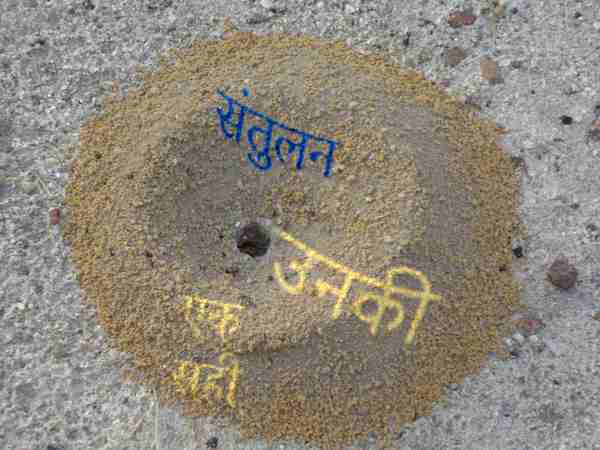 संतुलन
उनकी
एक